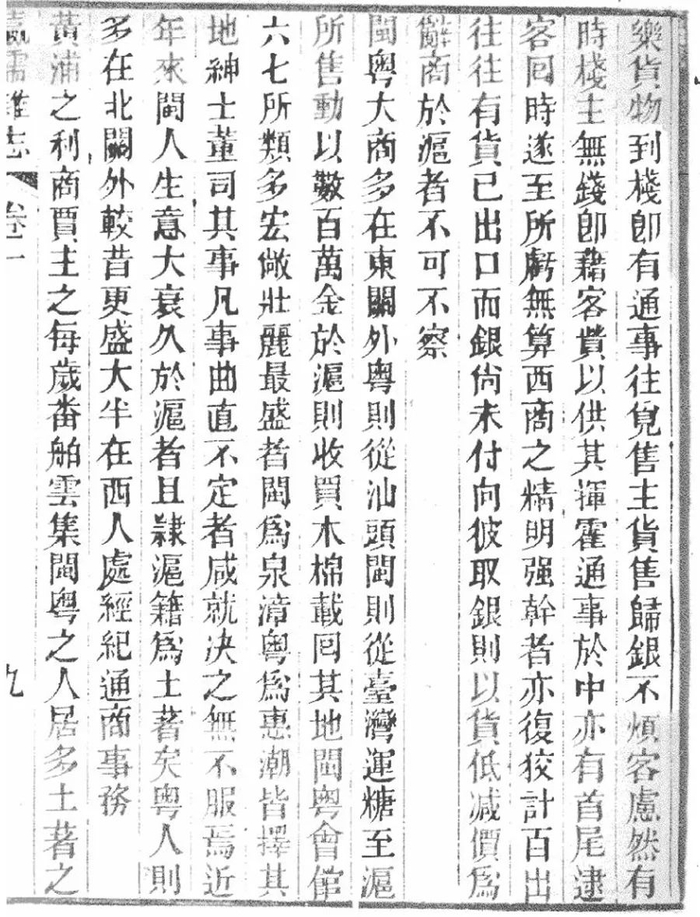 樂貨物到棧卽有通事往覓售主貨售歸銀不煩客慮然有
時棧主無錢卽藉客貲以供其揮霍通事於中亦有首尾逮
客囘時遂至所虧無算西商之精明强幹者亦復狡計百出
往往有貨已出口而銀尚未付向彼取銀則以貨低减價爲
辭商於滬者不可不察
閩粵大商多在東關外粵則從汕頭閩則從臺灣運糖至滬
所售動以數百萬金於滬則收買木棉載囘其地閩粵會館
六七所類多宏敞壯麗最盛者閩爲泉漳粵爲惠潮皆擇其
地紳士董司其事凡事曲直不定者咸就决之無不服焉近
年來閩人生意大衰久於滬者且隸滬籍爲土著矣粵人則
多在北關外較昔更盛大半在西人處經紀通商事務
黃浦之利商賈主之每歲番舶雲集閩粵之人居多土著之
瀛壖雜志 卷一 九